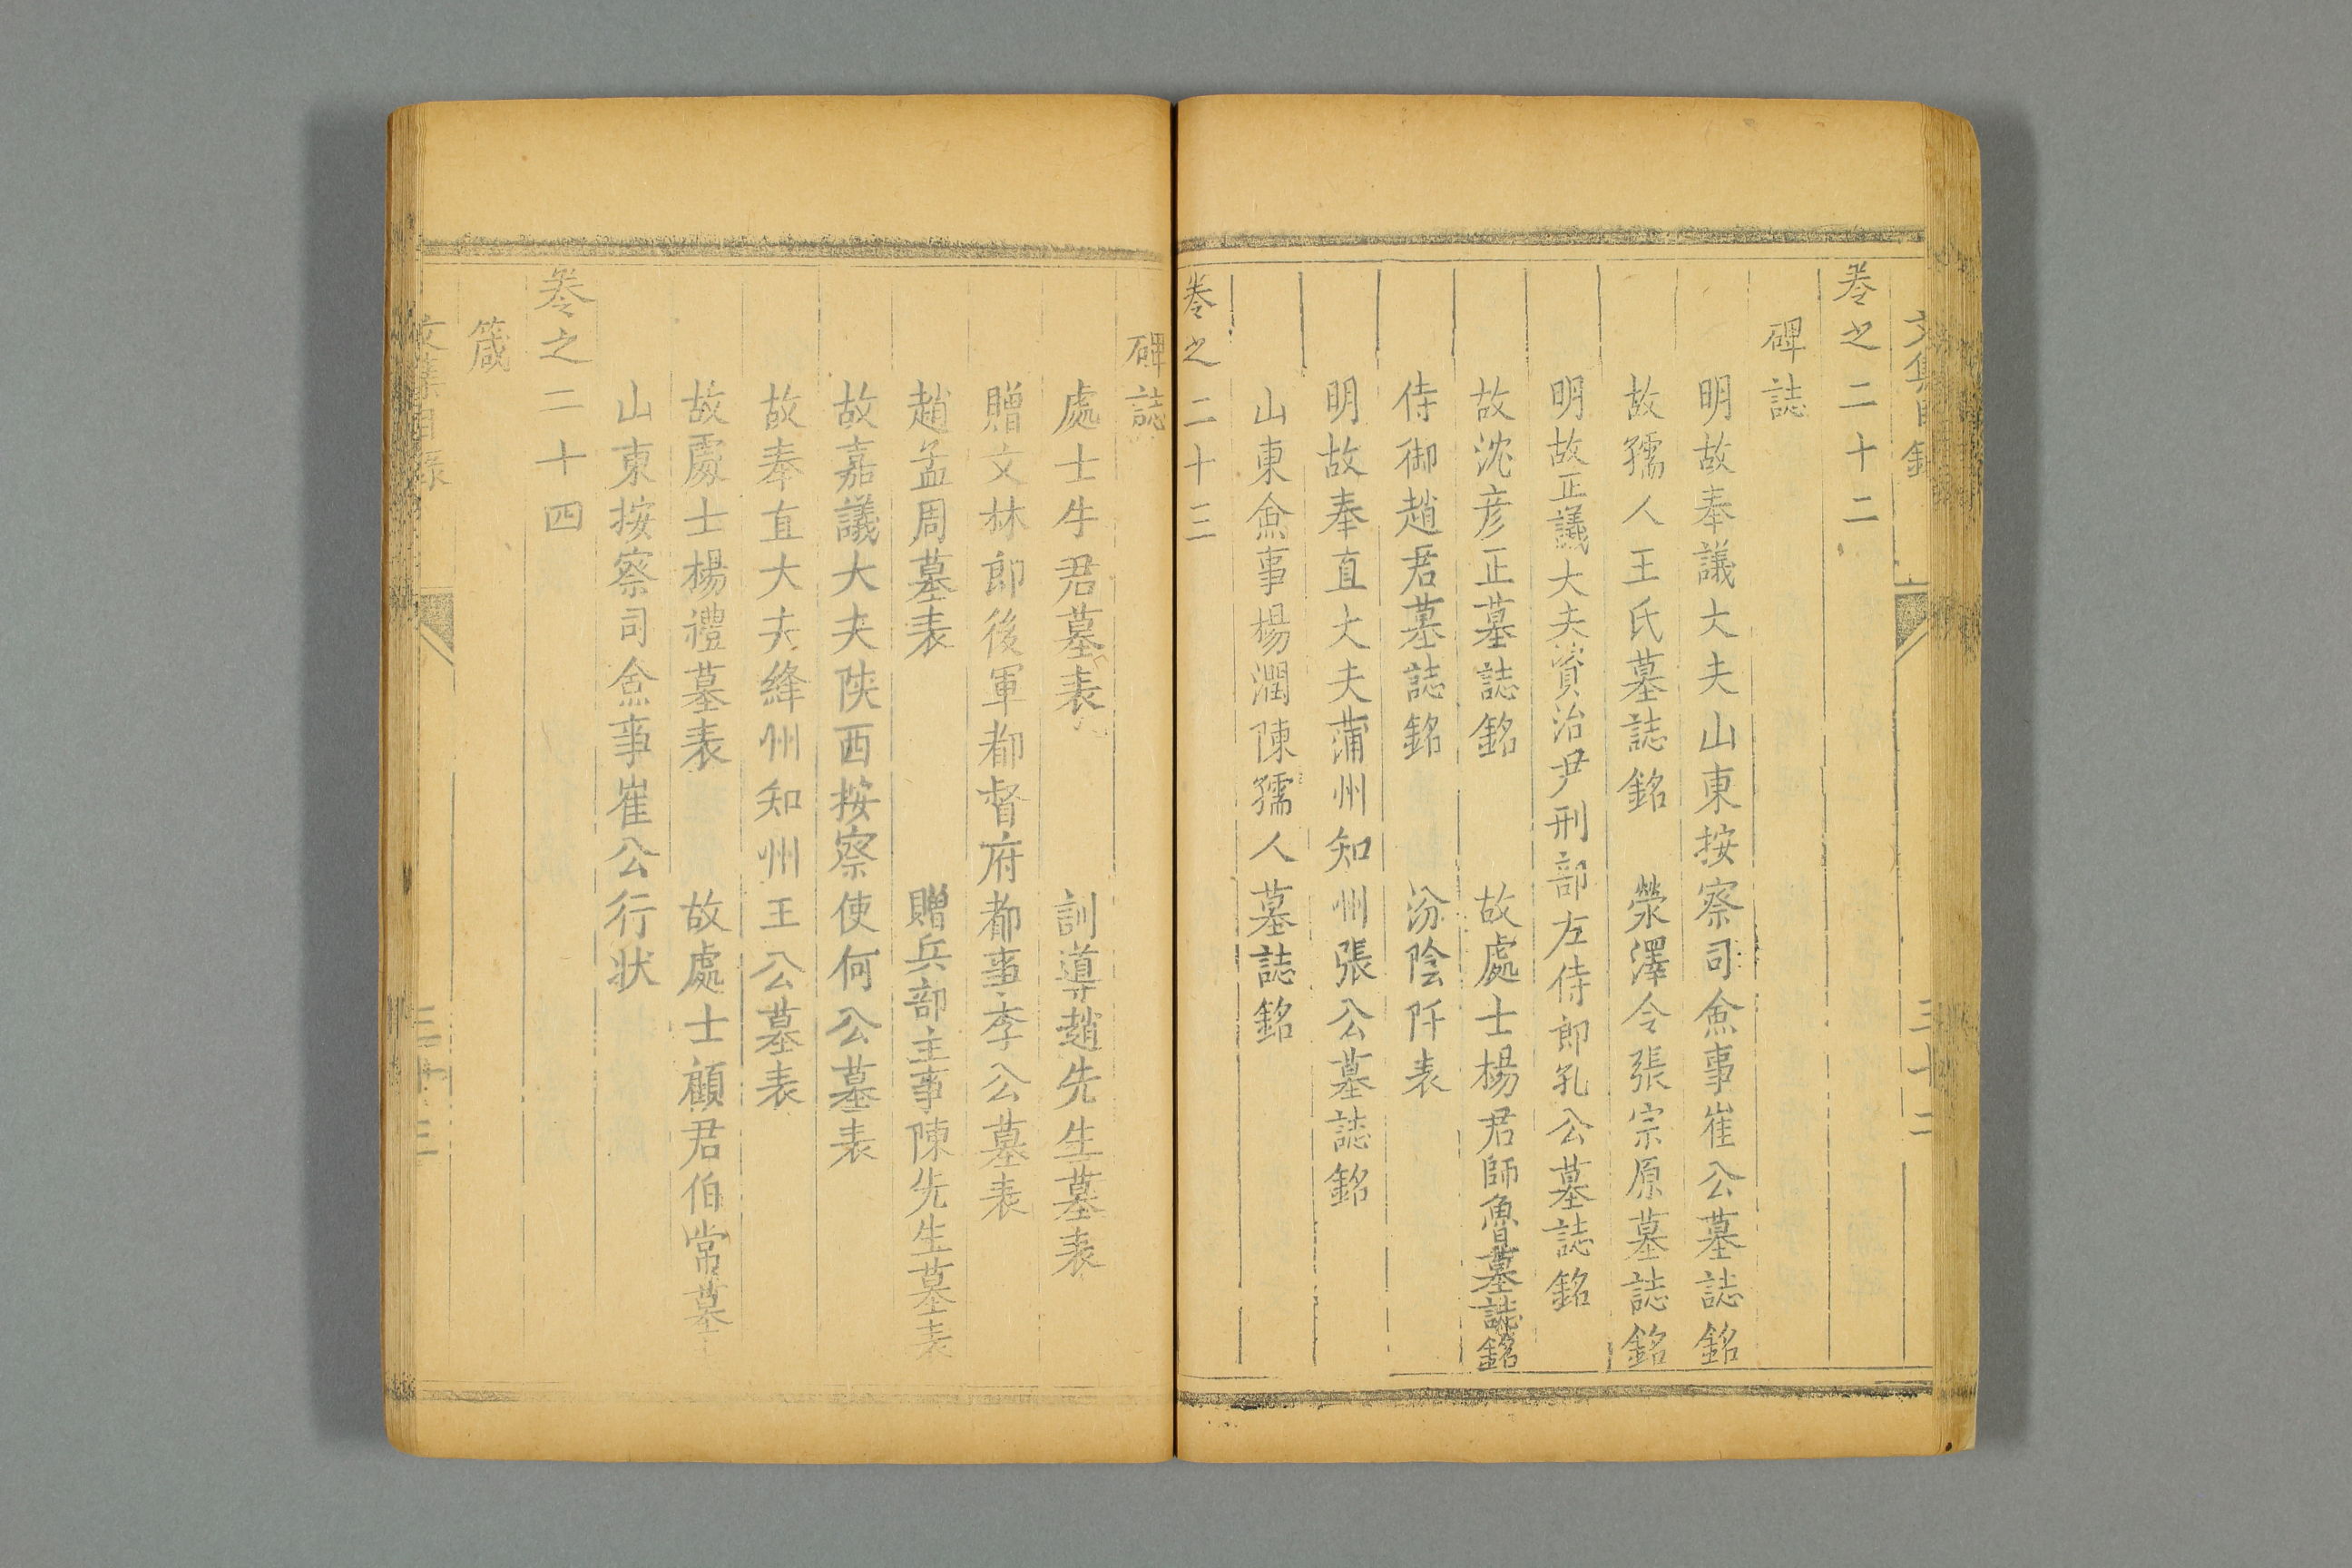 文集目錄
三十二
卷之二十二
碑誌
明故奉議大夫山東按察司僉事崔公墓誌銘
故孺人王氏墓誌銘 滎澤令張宗原墓誌銘
明故正議大夫資治尹刑部左侍郎孔公墓誌銘
故沈彥正墓誌銘 故處士楊君師魯墓誌銘
侍御趙君墓誌銘 汾陰阡表
明故奉直大夫蒲州知州張公墓誌銘
山東僉事楊潤陳孺人墓誌銘
卷之二十三
碑誌
處士牛君墓表 訓導趙先生墓表
贈文林郎後軍都督府都事李公墓表
趙孟周墓表 贈兵部主事陳先生墓表
故嘉議大夫陝西按察使何公墓表
故奉直大夫絳州知州王公墓表
故處士楊禮墓表 故處士顧君伯常墓
山東按察司僉事崔公行狀
卷之二十四
箴
文集目錄
三十三